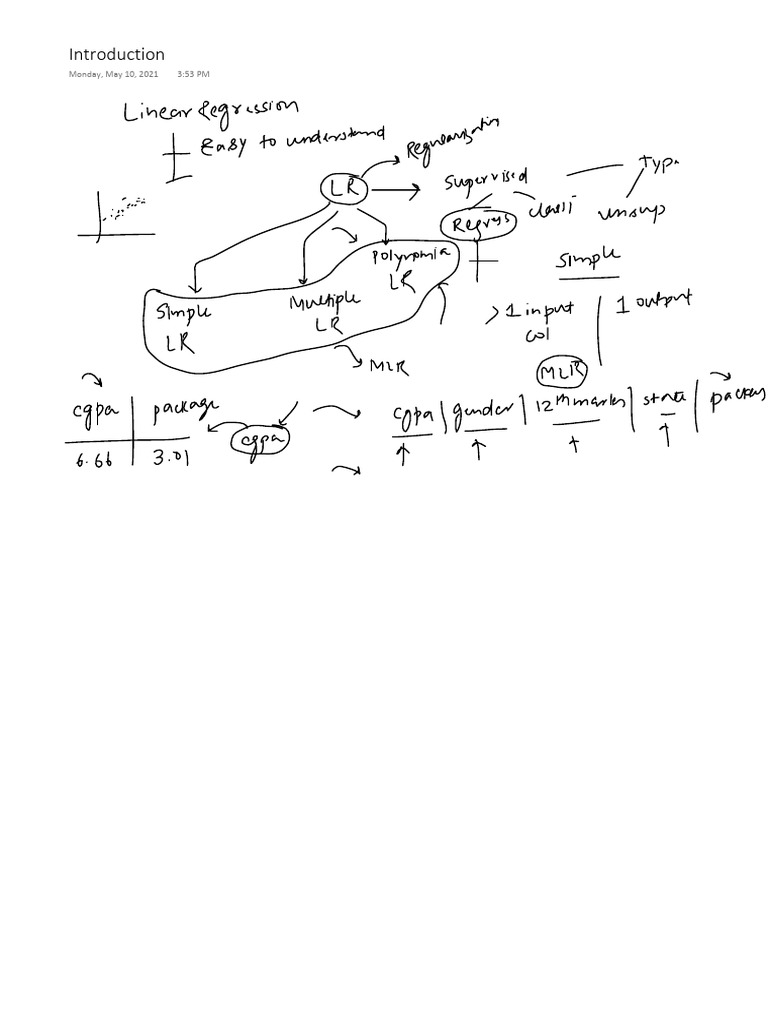 Introduction
Monday, May 10, 2021 3:53 PM
Linear Regression
Easy to understand
LR
Supervised
Regress
classi
unsup
Simple LR
Multiple LR
Polynomia LR
MLR
Simple
> 1 input col | 1 output
MLR
cgpa | package
6.66 | 3.01
cgpa
cgpa | gender | 12th marks | state |